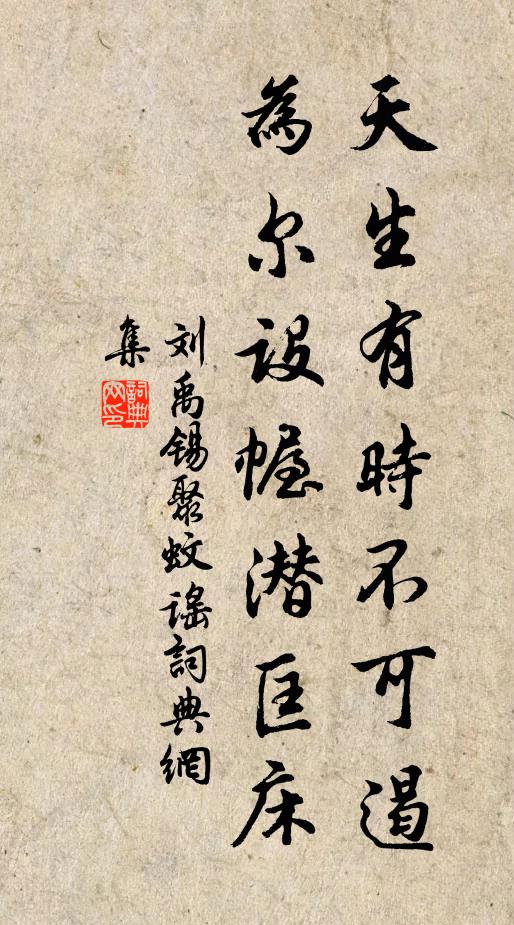 天生有時不可遏
為尔設幄潜匡床
刘禹锡聚蚊謠詞典網
集
詞典网印